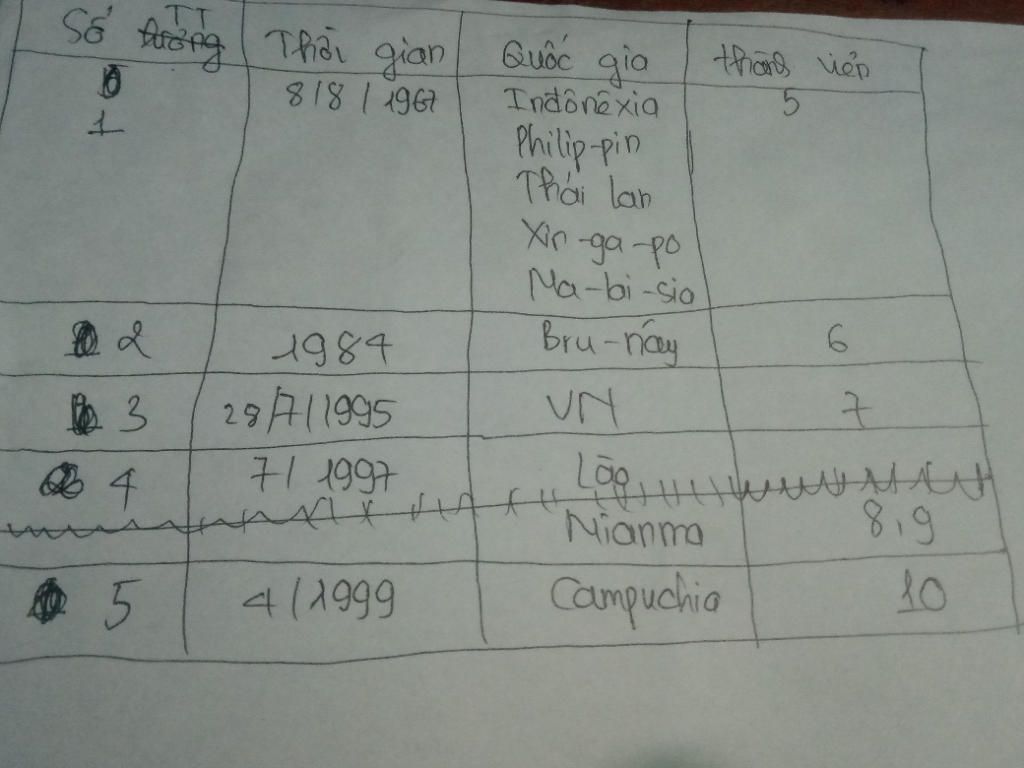 Số TT Thời gian Quốc gia thành viên
1 8/8/1967 Inđônêxia 5
Philip-pin
Thái lan
Xin-ga-po
Ma-lai-sia
2 1984 Bru-nây 6
3 28/7/1995 VN 7
4 7/1997 Lào
Mianma 8,9
5 4/1999 Campuchia 10